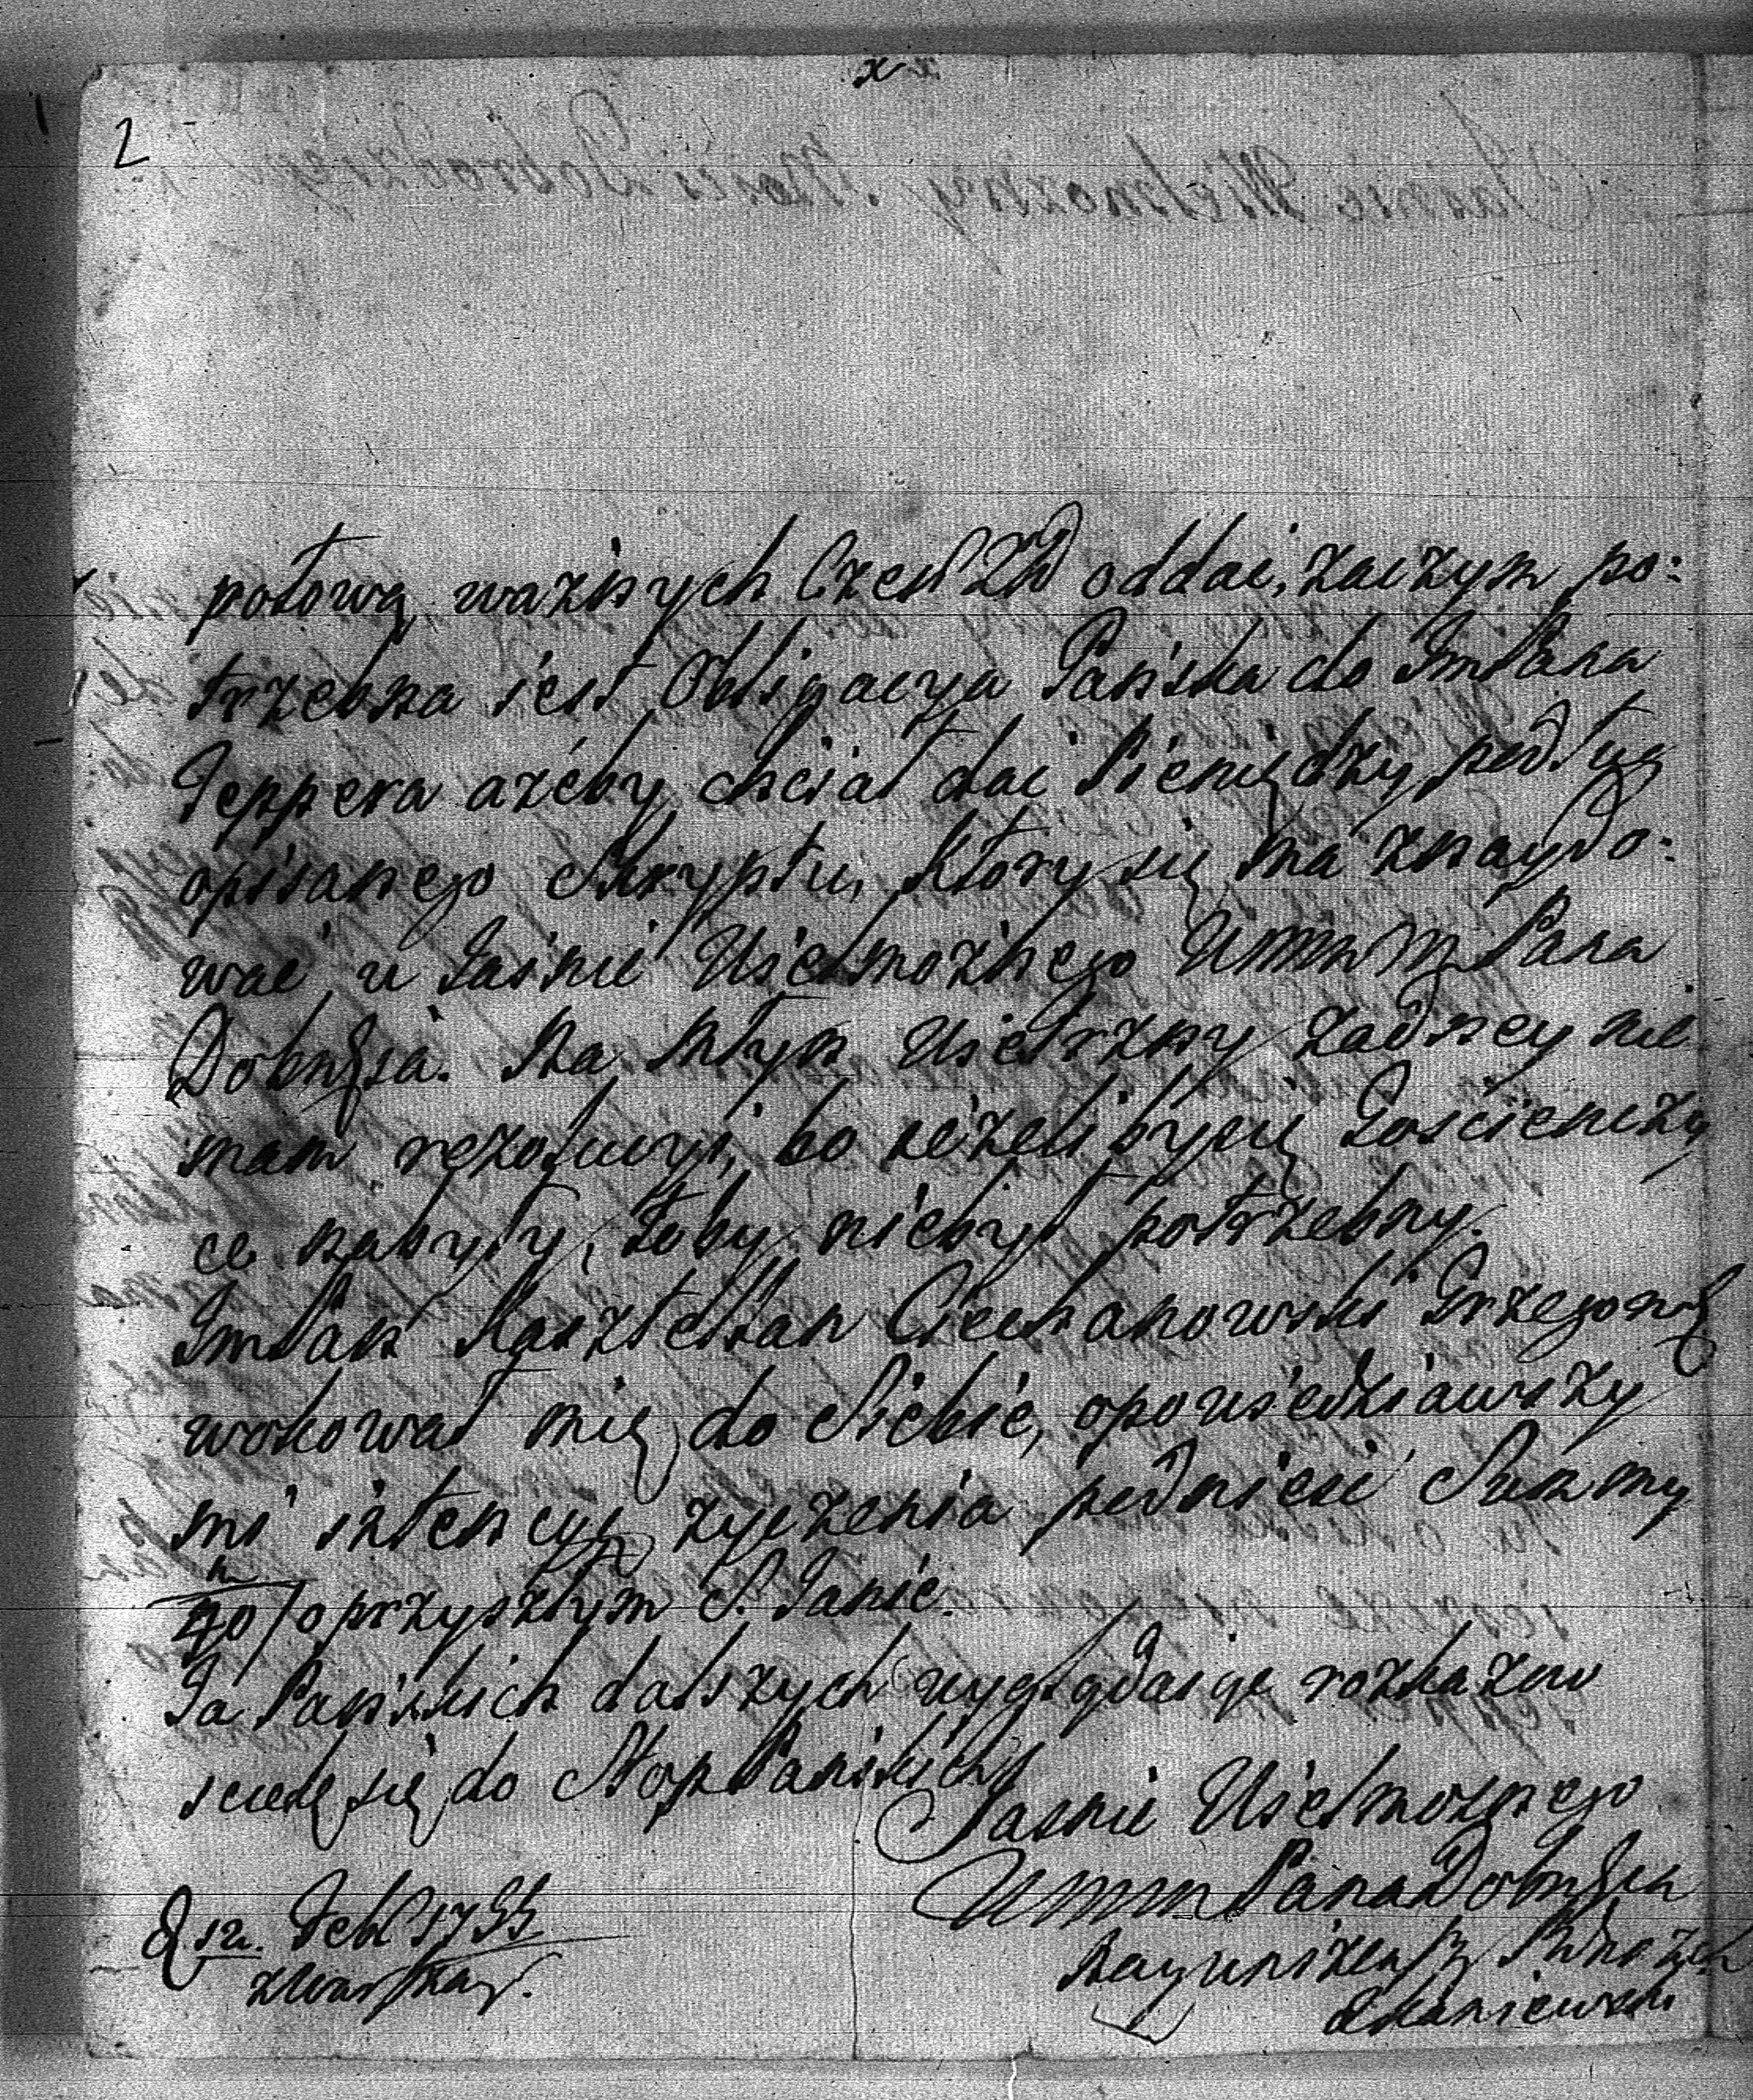 2
połową ważnych Czer Zł oddac, zaczym po:
trzebna iest Obligacya Pańska do JmPana
Teppera ażeby chciał dac Pieniędzy podług
opisanego Skryptu, ktory się ma znaydo:
wac u Jasnie Wielmożnego WMM Pana
Dobrdzia. Na Młyn Wietrzny żadney nie
mam rezolucyi, bo ieżeliby się Gościeniży
ce nabyły, toby niebył potrzebny.
JmPan Kasztellan Ciechanowski Grzegorz
wokował mię do Siebie, opowiedziawszy
mi intencyą życzenia podnieść Summy
40/m o przyszłym S. Janie.
Ja Pańskich dalszych wyglądaiąc rozkazow
scielę się do Stop Pańskich
Jasnie Wielmożnego
WMM Pana Dobrdzia
Nayuniżeńszy
d 12. Feb 1755
z Warszawy.